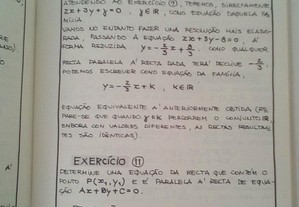 ATENDENDO AO EXERCÍCIO (9), TEREMOS, DIRECTAMENTE
2x+3y+γ=0 , γ∈ℝ , COMO EQUAÇÃO DAQUELA FA-
MÍLIA.
VAMOS NO ENTANTO FAZER UMA RESOLUÇÃO MAIS ELABO-
RADA, PASSANDO À EQUAÇÃO 2x+3y-8=0 , À
FORMA REDUZIDA, y=-2/3x+8/3. COMO QUALQUER
RECTA PARALELA À RECTA DADA TERÁ DECLIVE -2/3,
PODEMOS ESCREVER COMO EQUAÇÃO DA FAMÍLIA,
y=-2/3x+k , k∈ℝ
EQUAÇÃO EQUIVALENTE À ANTERIORMENTE OBTIDA (RE-
PARE-SE QUE QUANDO γ E k PERCORREM O CONJUNTO ℝ,
EMBORA COM VALORES DIFERENTES, AS RECTAS RESULTAN-
TES SÃO IDÊNTICAS).
EXERCÍCIO (11)
DETERMINE UMA EQUAÇÃO DA RECTA QUE CONTÉM O
PONTO P(x₁,y₁) E É PARALELA À RECTA DE EQUA-
ÇÃO Ax+By+C=0.